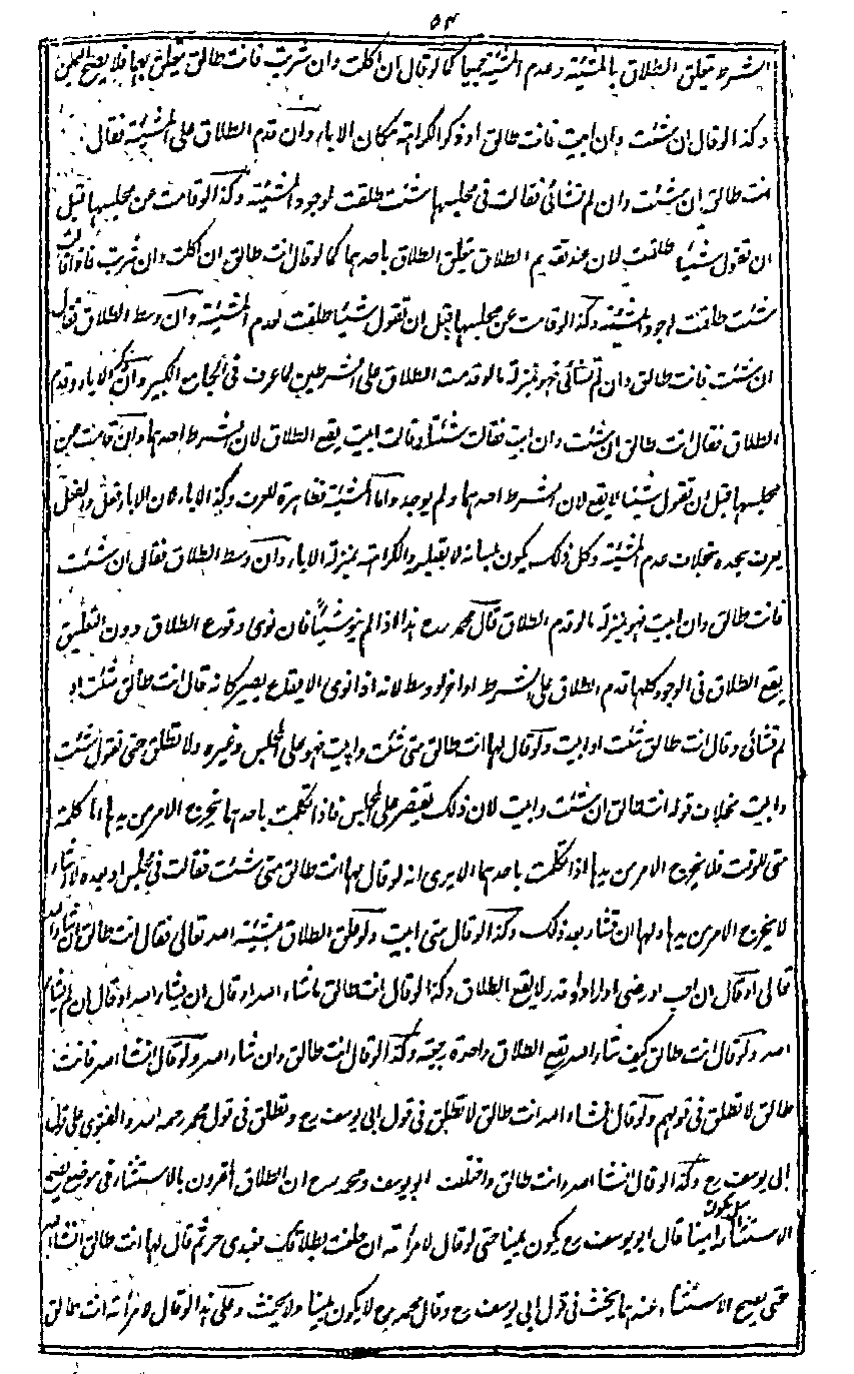 ٥٤
الشرط تعلق الطلاق بالمشيئة وعدم المشيئة جميعا كما لو قال ان اكلت وان شربت فانت طالق يتعلق بهما فلا يصح التعليق
وكذا لو قال ان شئت وان ابيت فانت طالق او ذكر الكراهة مكان الاباء وان قدم الطلاق على المشيئة فقال
انت طالق ان شئت وان لم تشائى فقالت فى مجلسها شئت طلقت لوجود المشيئة وكذا لو قامت عن مجلسها قبل
ان تقول شيئا طلقت لان عند تقديم الطلاق يتعلق الطلاق باحدهما كما لو قال انت طالق ان اكلت وان شربت فاذا قالت
شئت طلقت لوجود المشيئة وكذا لو قامت عن مجلسها قبل ان تقول شيئا طلقت لعدم المشيئة وان وسط الطلاق فقال
ان شئت فانت طالق وان لم تشائى فهو بمنزلة ما لو قدمت الطلاق على الشرطين لما عرف فى الجامع الكبير وان ذكر الاباء وقدم
الطلاق فقال انت طالق ان شئت وان ابيت فقالت شئت او قالت ابيت يقع الطلاق لان الشرط احدهما وان قامت عن
مجلسها قبل ان تقول شيئا لا يقع لان الشرط احدهما ولم يوجد واما المشيئة فظاهرة للعرف وكذا الاباء لان الاباء فعل والفعل
يعرف بحده بخلاف عدم المشيئة وكل ذلك يكون بلسانه لا بقلبه والكراهة بمنزلة الاباء وان وسط الطلاق فقال ان شئت
فانت طالق وان ابيت فهو بمنزلة ما لو قدم الطلاق قال محمد رح هذا اذا لم ينو شيئا فان نوى وقوع الطلاق دون التعليق
يقع الطلاق فى الوجوه كلها قدم الطلاق على الشرط او اخر او وسط لانه اذا نوى الايقاع يصير كانه قال انت طالق شئت او
لم تشائى وقال انت طالق شئت او ابيت ولو قال لها انت طالق متى شئت وابيت فهو على المجلس وغيره ولا تطلق حتى تقول شئت
وابيت بخلاف قوله انت طالق ان شئت وابيت لان ذلك يقتصر على المجلس فاذا تكلمت باحدهما يخرج الامر من يدها اما كلمة
متى للوقت فلا يخرج الامر من يدها اذا تكلمت باحدهما الا يرى انه لو قال لها انت طالق متى شئت فقالت فى مجلس او بعده لا اشاء
لا يخرج الامر من يدها ولها ان تشاء بعد ذلك وكذا لو قال متى ابيت ولو علق الطلاق بمشيئة الله تعالى فقال انت طالق ان شاء الله
تعالى او قال ان احب او رضى او اراد او قدر لا يقع الطلاق وكذا لو قال انت طالق ما شاء الله او قال ان يشاء الله او قال ان لم يشاء
الله ولو قال انت طالق كيف شاء الله تقع الطلاق واحدة رجعية وكذا لو قال انت طالق وان شاء الله ولو قال انشاء الله فانت
طالق لا تطلق فى قولهم ولو قال انشاء الله انت طالق لا تطلق فى قول ابى يوسف رح وتطلق فى قول محمد رحمه الله والفتوى على قول
ابى يوسف رح وكذا لو قال انشاء الله وانت طالق واختلف ابو يوسف ومحمد رح ان الطلاق المقرون بالاستثناء فى موضع يصح
الاستثناء هل يكون يمينا قال ابو يوسف رح يكون يمينا حتى لو قال لامرأته ان حلفت بطلاقك فعبدى حر ثم قال لها انت طالق انشاء الله
حتى يصح الاستثناء عندهما يحنث فى قول ابى يوسف رح وقال محمد رح لا يكون يمينا ولا يحنث وعلى هذا لو قال لامرأته انت طالق